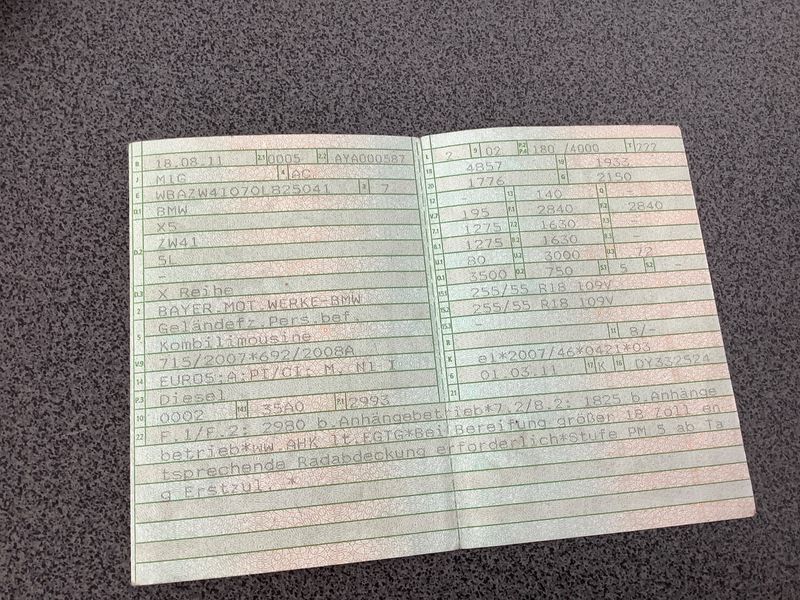 B 18.08.11 2.1 0005 2.2 AYA000587
J M1G 4 AC
E WBAZW41070L825041 3 7
D.1 BMW
X5
D.2 ZW41
5L
-
D.3 X Reihe
2 BAYER.MOT.WERKE-BMW
5 Geländef. Pers.bef.
Kombilimousine
V.9 715/2007*692/2008A
14 EURO5;A;PI/CI; M, N1 I
P.3 Diesel
10 0002 14.1 35A0 P.1 2993
L 2 9 02 P.2 P.4 180 /4000 T 222
18 4857 19 1933
20 1776 G 2150
12 - 13 140 Q -
V.7 195 F.1 2840 F.2 2840
7.1 1275 7.2 1630 7.3 -
8.1 1275 8.2 1630 8.3 -
U.1 80 U.2 3000 U.3 72
O.1 3500 O.2 750 S.1 5 S.2 -
15.1 255/55 R18 109V
15.2 255/55 R18 109V
15.3 -
R - 11 8/-
K e1*2007/46*0421*03
6 01.03.11 17 K 16 DY332524
21
22 F.1/F.2: 2980 b.Anhängebetrieb*7.2/8.2: 1825 b.Anhänge
betrieb*ww.AHK lt.EGTG*Bei Bereifung größer 18 Zoll en
tsprechende Radabdeckung erforderlich*Stufe PM 5 ab Ta
g Erstzul. *